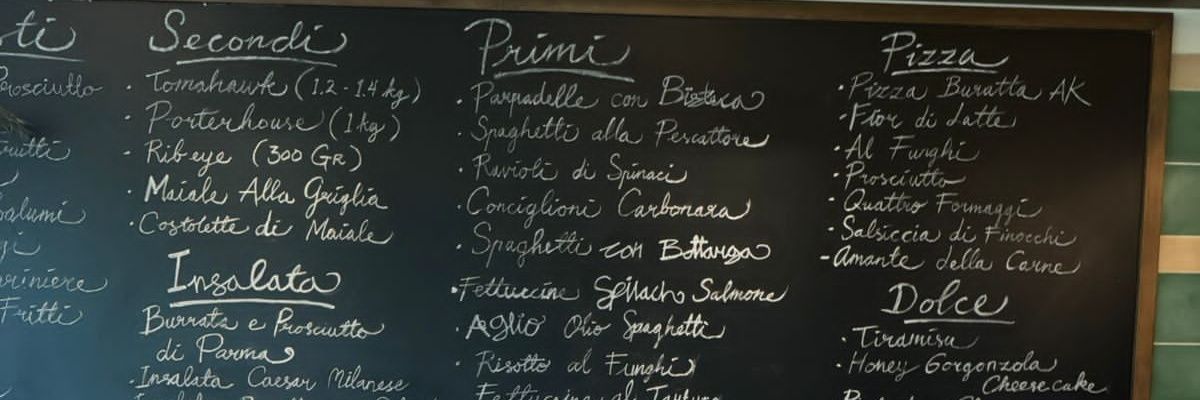 ti
Prosciutto
Frutti
Salumi
gi
ariniere
Fritti
Secondi
· Tomahawk (1.2 - 1.4 kg)
· Porterhouse (1 kg)
· Ribeye (300 GR)
· Maiale Alla Griglia
· Costolette di Maiale
Insalata
Burrata e Prosciutto
di Parma
· Insalata Caesar Milanese
Primi
· Parpadelle con
· Spaghetti alla Pescattore
· Ravioli di Spinaci
· Conciglioni Carbonara
· Spaghetti con Bottarga
· Fettuccine Spinach Salmone
· Aglio Olio Spaghetti
· Risotto al Funghi
Fettuccine al Tartufo
Pizza
· Pizza Buratta AK
· Fior di Latte
· Al Funghi
· Prosciutto
· Quattro Formaggi
· Salsiccia di Finocchi
- Amante della Carne
Dolce
· Tiramisu
· Honey Gorgonzola
Cheesecake